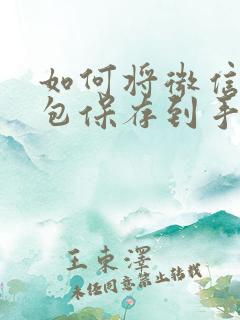 如何将微信
包保存到手
王东泽
未经同意禁止转载